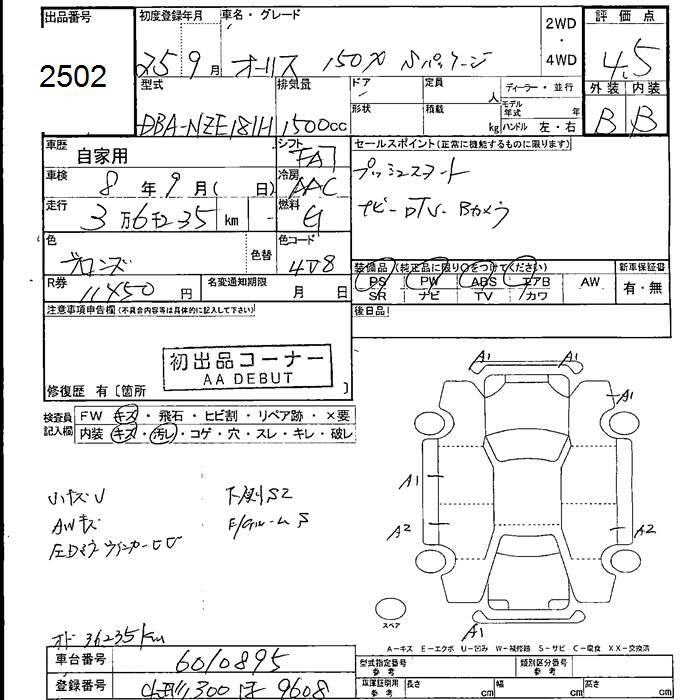 出品番号 2502
初度登録年月 25 9月
車名・グレード オーリス 150X Sパッケージ
2WD・4WD
評価点 4.5
外装 内装
B B
型式 DBA-NZE181H
排気量 1500cc
ドア 形状
定員 人
積載 kg
ディーラー・並行
モデル年式 年
ハンドル 左・右
車歴 自家用
シフト FAT
車検 8年9月(日)
冷房 AAC
走行 3万6千235km
燃料 G
色 ブロンズ
色替
色コード 4V8
R券 11450円
名変通知期限 月 日
セールスポイント(正常に機能するものに限ります)
プッシュスタート
ナビ-DTV-Bカメラ
装備品(純正品に限り○をつけてください)
PS PW ABS エアB AW
SR ナビ TV カワ
新車保証書 有・無
後日品
注意事項申告欄(不具合内容等は具体的に記入して下さい)
初出品コーナー
AA DEBUT
修復歴 有〔箇所 〕
検査員記入欄
FW キズ・飛石・ヒビ割・リペア跡・×要
内装 キズ・汚レ・コゲ・穴・スレ・キレ・破レ
小キズU 下廻りS2
AWキズ E/Gルーム S
左Dミラーウインカーヒビ
A1 A1
A1
A1
A2 A2
A1
スペア
オド 36235km
A-キズ E-エクボ U-凹み W-補修跡 S-サビ C-腐食 XX-交換済
車台番号 6010895
登録番号 300 ほ 9608
型式指定番号 参考
類別区分番号 参考
車庫証明用 参考
長さ cm
幅 cm
高さ cm